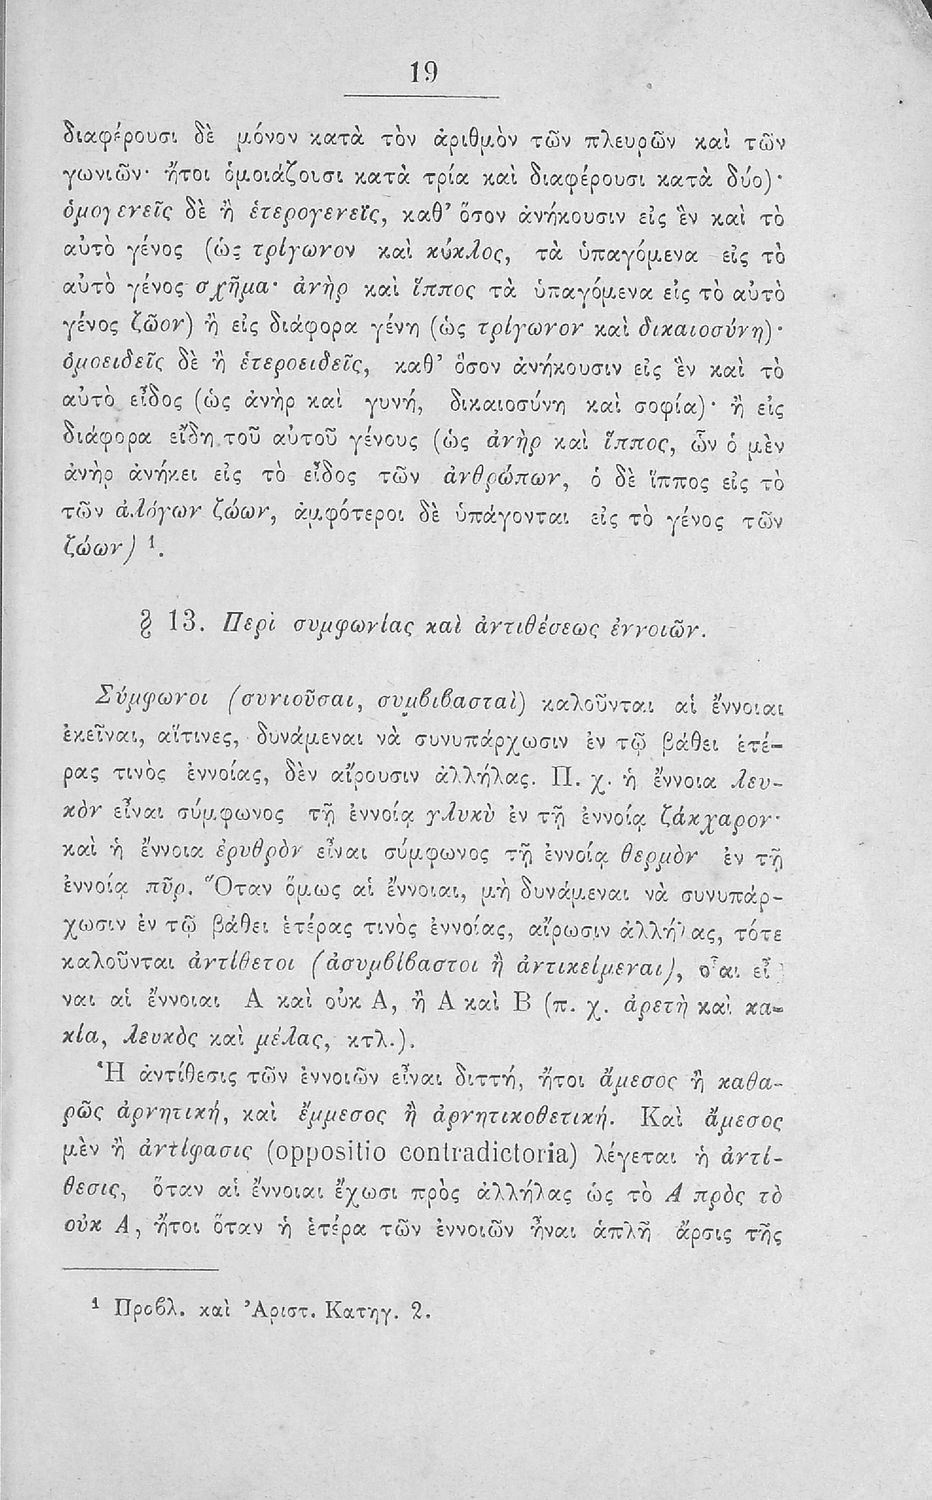 19
διαφέρουσι δὲ μόνον κατὰ τὸν ἀριθμὸν τῶν πλευρῶν καὶ τῶν
γωνιῶν· ἤτοι ὁμοιάζουσι κατὰ τρία καὶ διαφέρουσι κατὰ δύο)·
ὁμογενεῖς δὲ ἢ ἑτερογενεῖς, καθ’ ὅσον ἀνήκουσιν εἰς ἓν καὶ τὸ
αὐτὸ γένος (ὡς τρίγωνον καὶ κύκλος, τὰ ὑπαγόμενα εἰς τὸ
αὐτὸ γένος σχῆμα· ἀνὴρ καὶ ἵππος τὰ ὑπαγόμενα εἰς τὸ αὐτὸ
γένος ζῶον) ἢ εἰς διάφορα γένη (ὡς τρίγωνον καὶ δικαιοσύνη)·
ὁμοειδεῖς δὲ ἢ ἑτεροειδεῖς, καθ’ ὅσον ἀνήκουσιν εἰς ἓν καὶ τὸ
αὐτὸ εἶδος (ὡς ἀνὴρ καὶ γυνή, δικαιοσύνη καὶ σοφία)· ἢ εἰς
διάφορα εἴδη τοῦ αὐτοῦ γένους (ὡς ἀνὴρ καὶ ἵππος, ὧν ὁ μὲν
ἀνὴρ ἀνήκει εἰς τὸ εἶδος τῶν ἀνθρώπων, ὁ δὲ ἵππος εἰς τὸ
τῶν ἀλόγων ζώων, ἀμφότεροι δὲ ὑπάγονται εἰς τὸ γένος τῶν
ζώων) ¹.
§ 13. Περὶ συμφωνίας καὶ ἀντιθέσεως ἐννοιῶν.
Σύμφωνοι (συνιοῦσαι, συμβιβασταὶ) καλοῦνται αἱ ἔννοιαι
ἐκεῖναι, αἵτινες, δυνάμεναι νὰ συνυπάρχωσιν ἐν τῷ βάθει ἑτέ-
ρας τινὸς ἐννοίας, δὲν αἴρουσιν ἀλλήλας. Π. χ. ἡ ἔννοια λευ-
κὸν εἶναι σύμφωνος τῇ ἐννοίᾳ γλυκὺ ἐν τῇ ἐννοίᾳ ζάκχαρον·
καὶ ἡ ἔννοια ἐρυθρὸν εἶναι σύμφωνος τῇ ἐννοίᾳ θερμὸν ἐν τῇ
ἐννοίᾳ πῦρ. Ὅταν ὅμως αἱ ἔννοιαι, μὴ δυνάμεναι νὰ συνυπάρ-
χωσιν ἐν τῷ βάθει ἑτέρας τινὸς ἐννοίας, αἴρωσιν ἀλλήλας, τότε
καλοῦνται ἀντίθετοι (ἀσυμβίβαστοι ἢ ἀντικείμεναι), οἷαι εἶ
ναι αἱ ἔννοιαι Α καὶ οὐκ Α, ἢ Α καὶ Β (π. χ. ἀρετὴ καὶ κα-
κία, λευκὸς καὶ μέλας, κτλ.).
Ἡ ἀντίθεσις τῶν ἐννοιῶν εἶναι διττή, ἤτοι ἄμεσος ἢ καθα-
ρῶς ἀρνητική, καὶ ἔμμεσος ἢ ἀρνητικοθετική. Καὶ ἄμεσος
μὲν ἢ ἀντίφασις (oppositio contradictoria) λέγεται ἡ ἀντί-
θεσις, ὅταν αἱ ἔννοιαι ἔχωσι πρὸς ἀλλήλας ὡς τὸ Α πρὸς τὸ
οὐκ Α, ἤτοι ὅταν ἡ ἑτέρα τῶν ἐννοιῶν ἦναι ἁπλῆ ἄρσις τῆς
¹ Προβλ. καὶ Ἀριστ. Κατηγ. 2.